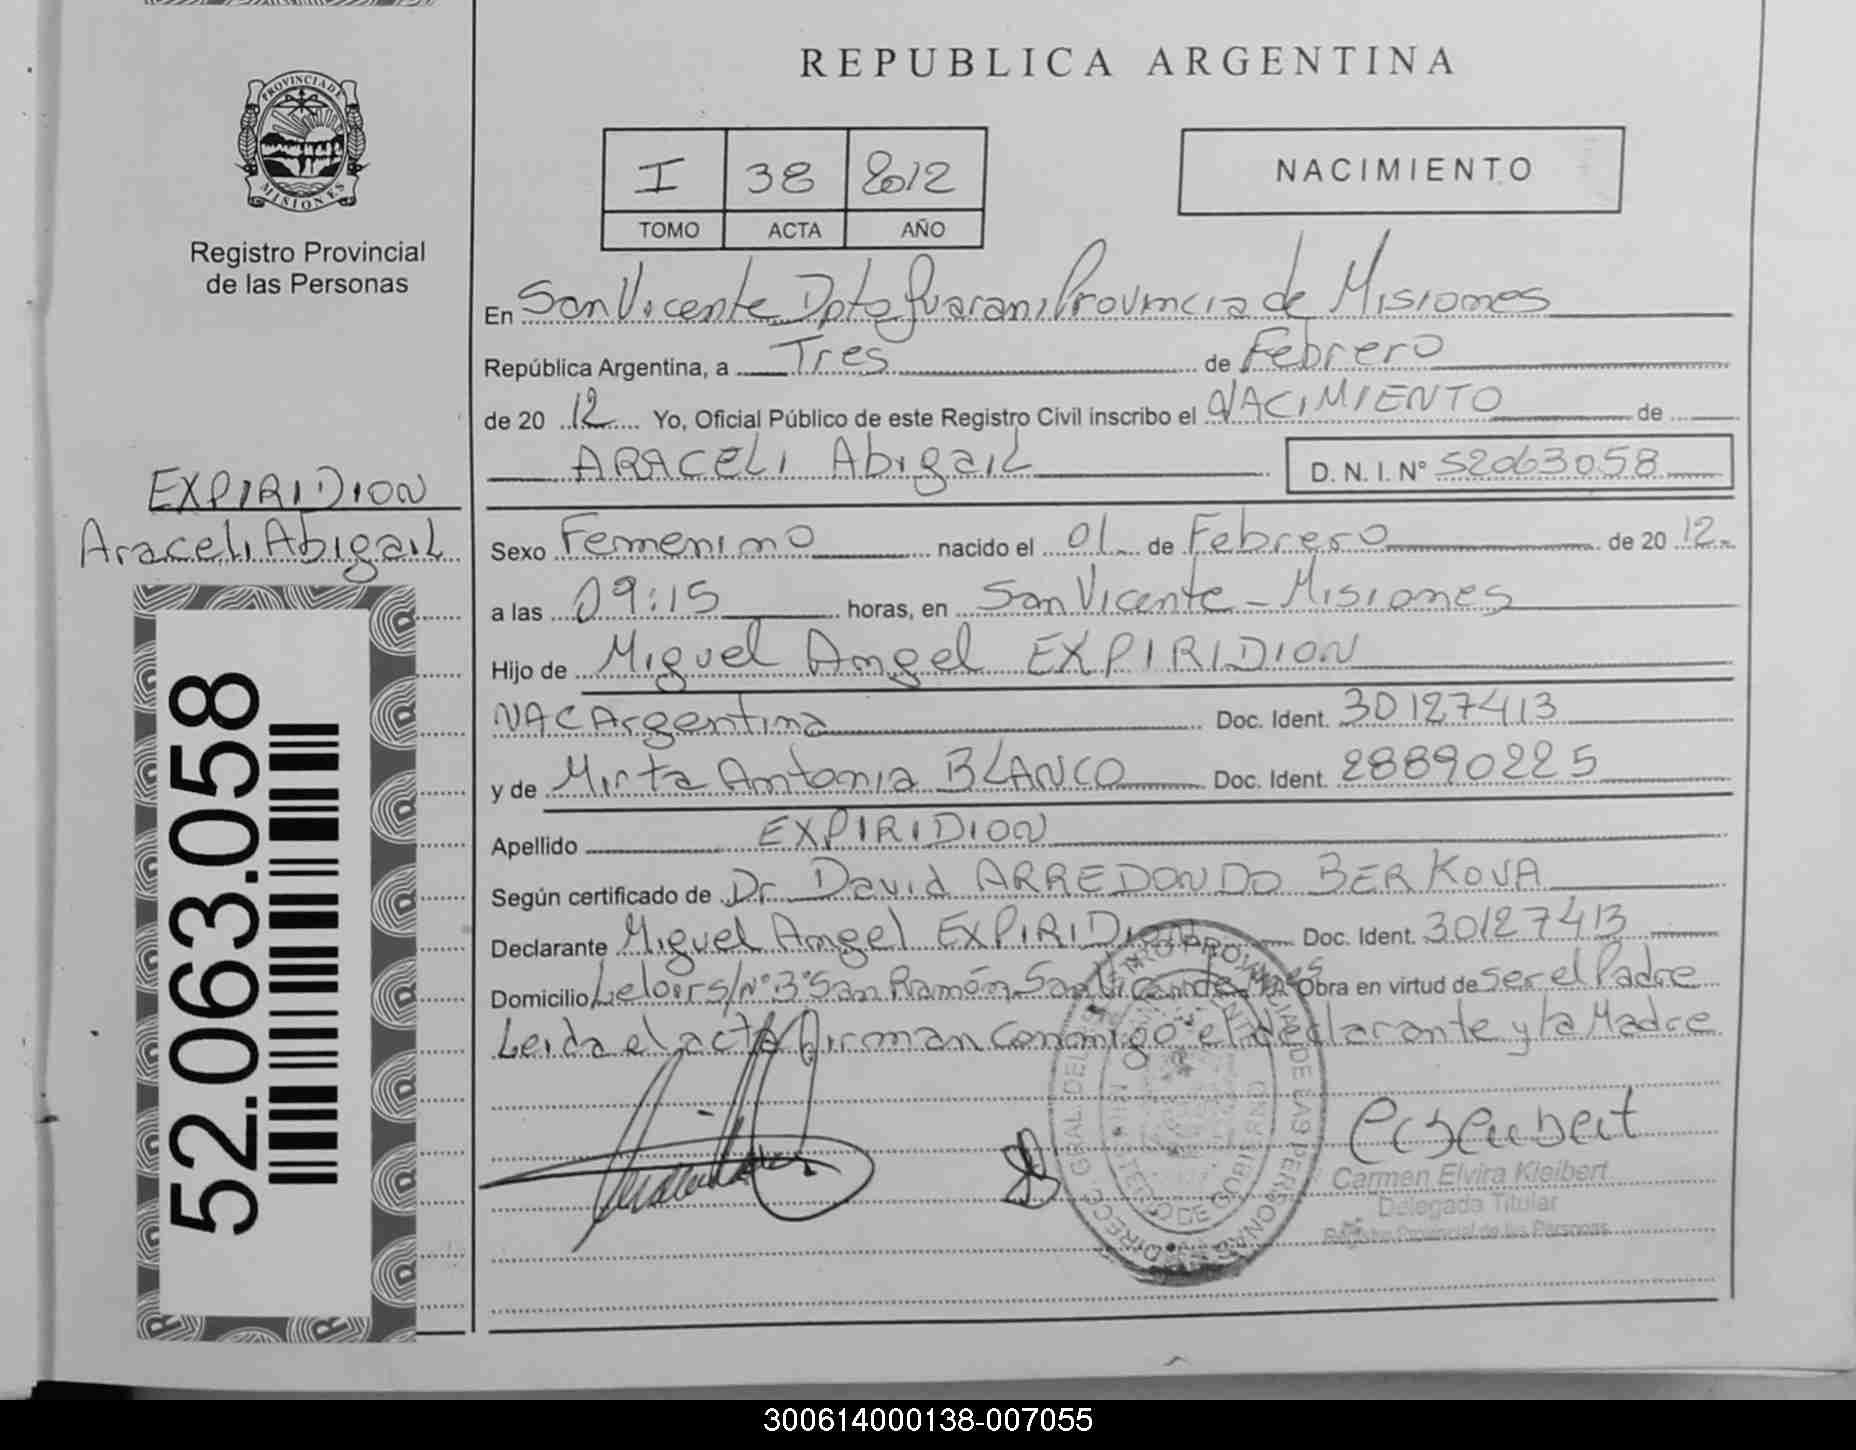 PROVINCIA DE
MISIONES
Registro Provincial
de las Personas
EXPIRIDION
Araceli Abigail
52.063.058
REPUBLICA ARGENTINA
I 38 2012
TOMO ACTA AÑO
NACIMIENTO
En San Vicente Dpto Guarani Provincia de Misiones
República Argentina, a Tres de Febrero
de 20 12 Yo, Oficial Público de este Registro Civil inscribo el NACIMIENTO de
ARACELI Abigail D. N. I. N° 52063058
Sexo Femenino nacido el 01 de Febrero de 20 12
a las 09:15 horas, en San Vicente - Misiones
Hijo de Miguel Angel EXPIRIDION
NAC Argentina Doc. Ident. 30127413
y de Mirta Antonia BLANCO Doc. Ident. 28890225
Apellido EXPIRIDION
Según certificado de Dr. David ARREDONDO BERKOVA
Declarante Miguel Angel EXPIRIDION Doc. Ident. 30127413
Domicilio Leloir s/N° B° San Ramón San Vicente Mnes Obra en virtud de ser el Padre
Leida el acta firman conmigo el declarante y la Madre
Carmen Elvira Kleibert
Delegada Titular
Registro Provincial de las Personas
300614000138-007055